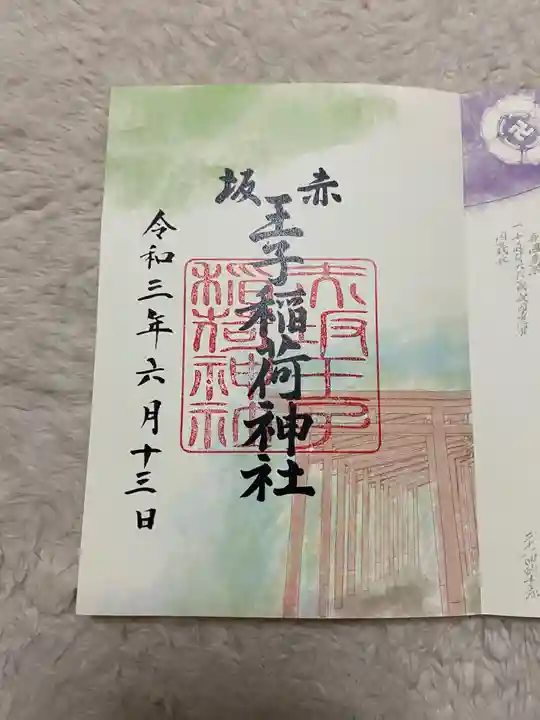 赤坂
王子稲荷神社
赤坂王子
稲荷神社
令和三年六月十三日